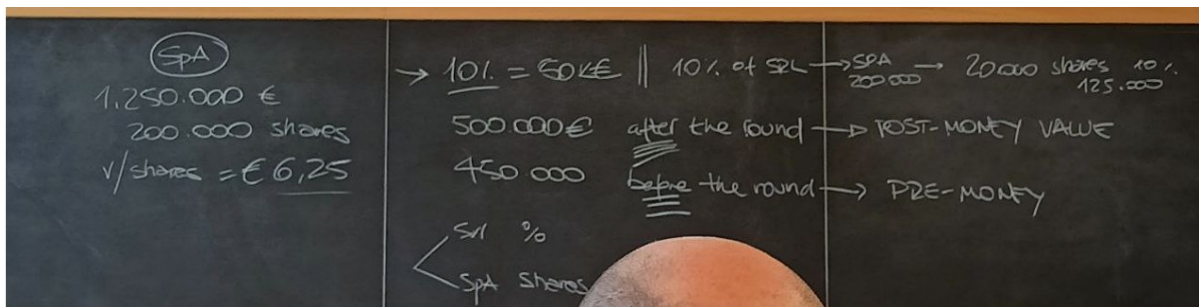 SpA
1.250.000 €
200.000 shares
v/shares = € 6,25
→ 10% = 50K€ || 10% of SRL → SPA 200000 → 20000 shares 10%
125.000
500.000€ after the round → POST-MONEY VALUE
450 000 before the round → PRE-MONEY
Srl %
SpA shares